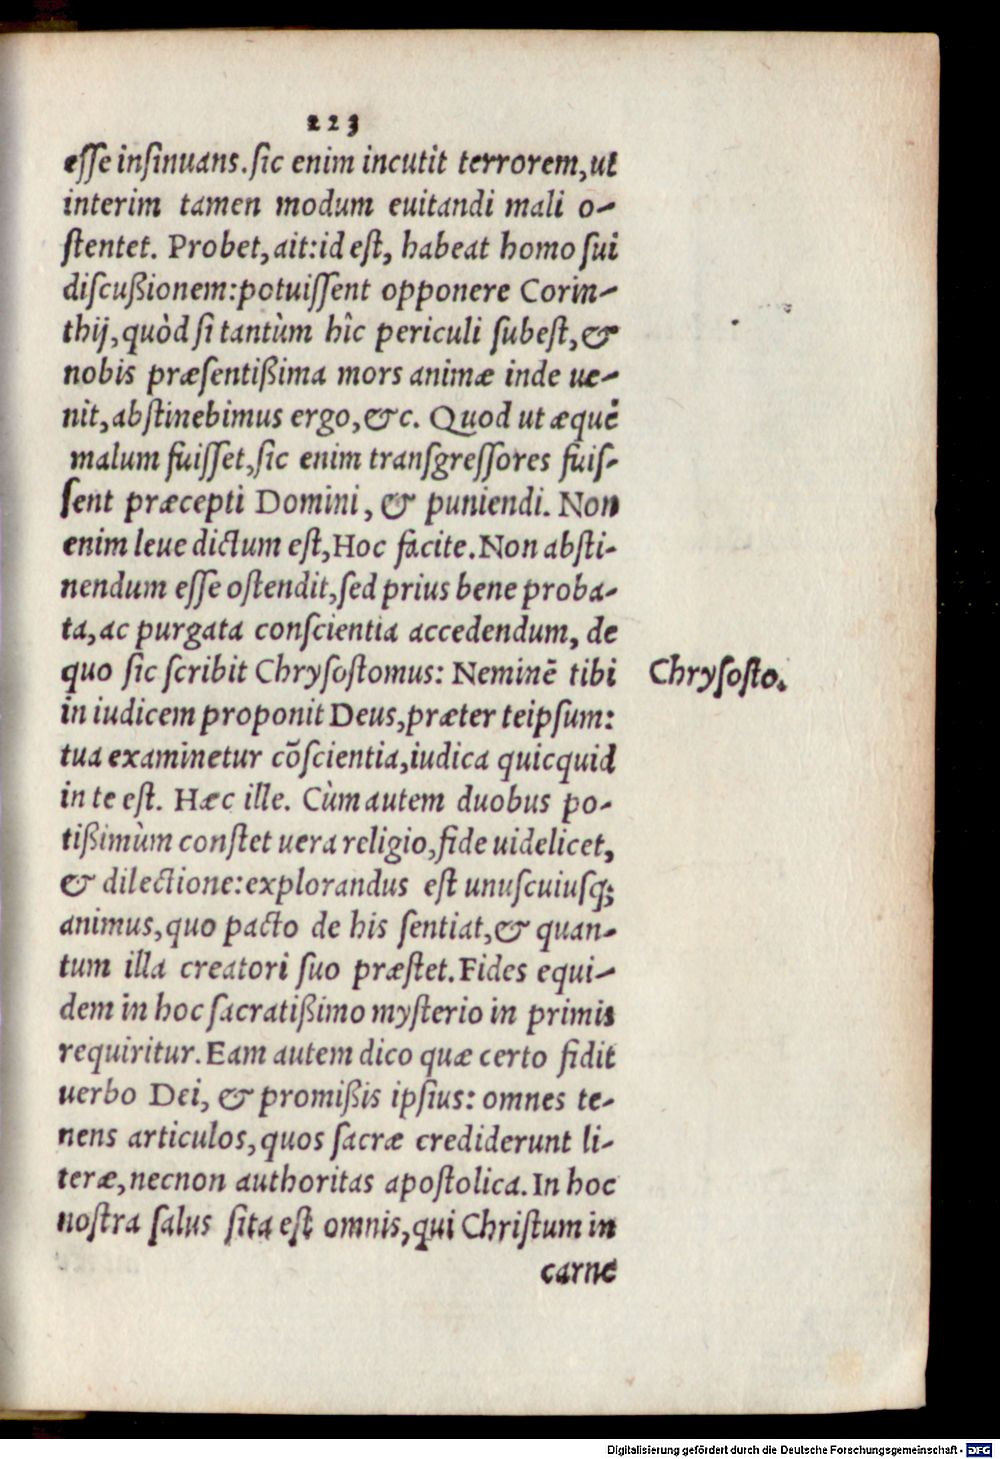 223
esse insinuans. sic enim incutit terrorem, ut
interim tamen modum euitandi mali o-
stentet. Probet, ait: id est, habeat homo sui
discußionem: potuissent opponere Corin-
thij, quòd si tantùm hîc periculi subest, &
nobis præsentißima mors animæ inde ue-
nit, abstinebimus ergo, &c. Quod ut æquè
malum fuisset, sic enim transgressores fuis-
sent præcepti Domini, & puniendi. Non
enim leue dictum est, Hoc facite. Non absti-
nendum esse ostendit, sed prius bene proba-
ta, ac purgata conscientia accedendum, de
quo sic scribit Chrysostomus: Neminē tibi
Chrysosto.
in iudicem proponit Deus, præter teipsum:
tua examinetur cōscientia, iudica quicquid
in te est. Hæc ille. Cùm autem duobus po-
tißimùm constet uera religio, fide uidelicet,
& dilectione: explorandus est unuscuiusq;
animus, quo pacto de his sentiat, & quan-
tum illa creatori suo præstet. Fides equi-
dem in hoc sacratißimo mysterio in primis
requiritur. Eam autem dico quæ certo fidit
uerbo Dei, & promißis ipsius: omnes te-
nens articulos, quos sacræ crediderunt li-
teræ, necnon authoritas apostolica. In hoc
nostra salus sita est omnis, qui Christum in
carne
Digitalisierung gefördert durch die Deutsche Forschungsgemeinschaft - DFG